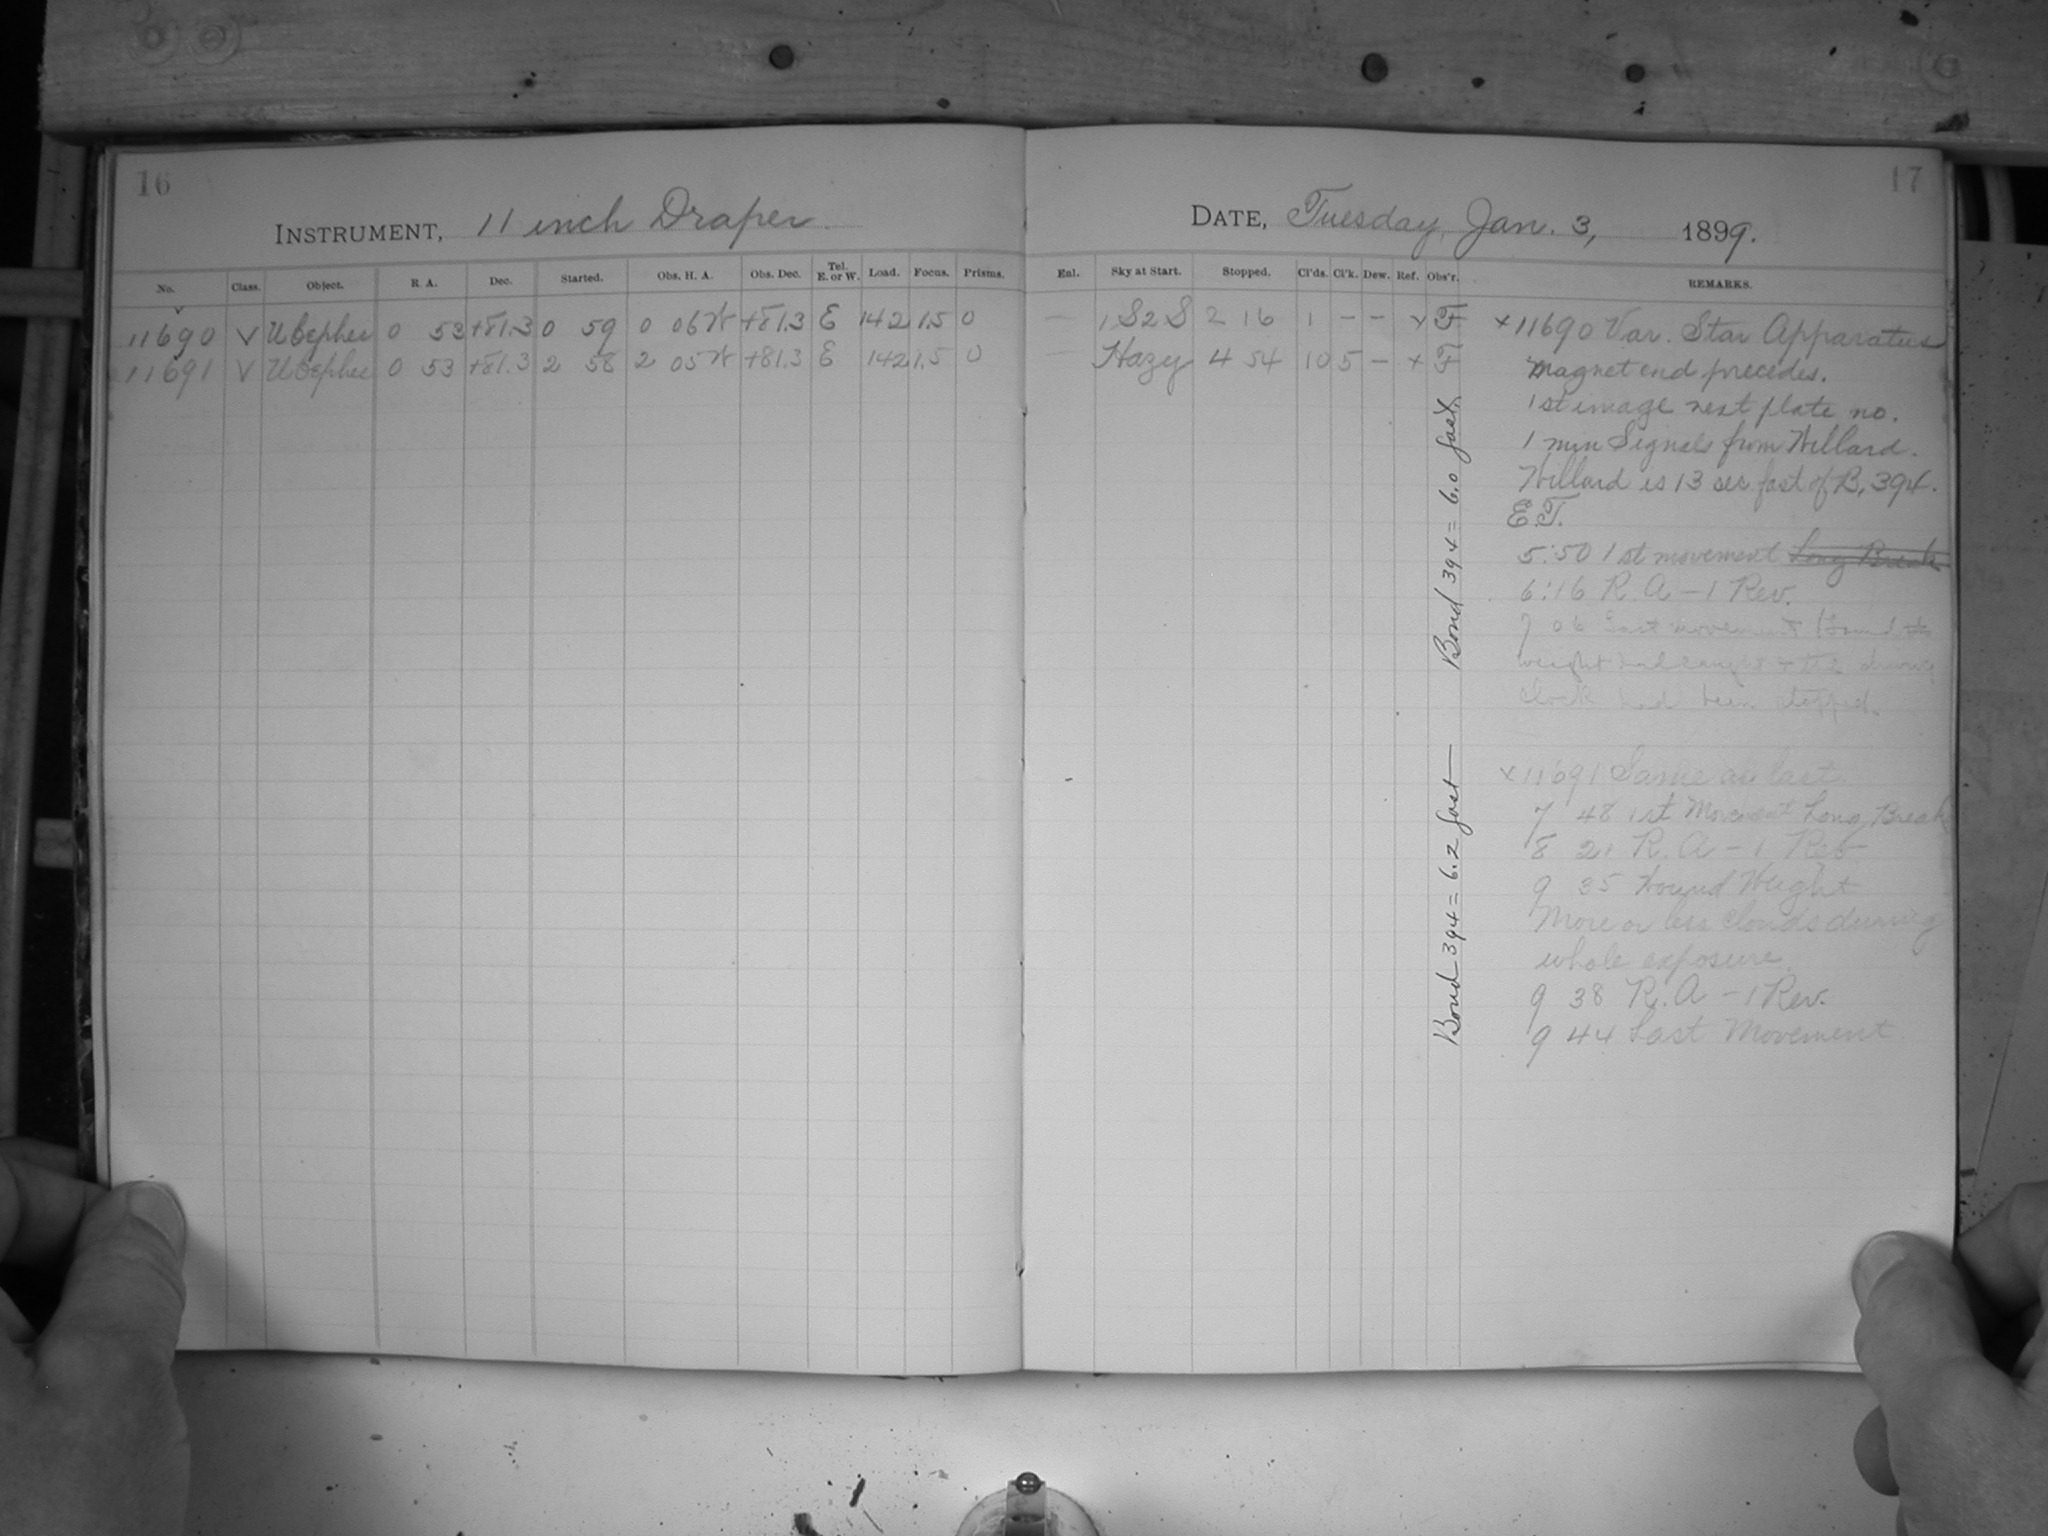 16
INSTRUMENT, 11 inch Draper.
No. Class. Object. R. A. Dec. Started. Obs. H. A. Obs. Dec. Tel. E. or W. Load. Focus. Prisms.
11690 V U Cephei 0 53 +81.3 0 59 0 06 W +81.3 E 142 1.5 0
11691 V U Cephei 0 53 +81.3 2 58 2 05 W +81.3 E 142 1.5 0
17
DATE, Tuesday, Jan. 3, 1899.
Enl. Sky at Start. Stopped. Cl'ds. Cl'k. Dew. Ref. Obs'r. REMARKS.
— 1 S 2 S 2 16 1 – – x F
— Hazy 4 54 10 5 – x F
Bond 394 = 6.0 fast.
Bond 394 = 6.2 fast
x 11690 Var. Star Apparatus
magnet end precedes.
1st image next plate no.
1 min Signals from Willard.
Willard is 13 sec fast of B, 394.
E.T.
5:50 1st movement Long Break
6:16 R. A – 1 Rev.
7 06 Last movement found the
weight had caught & the driving
clock had been stopped.
x 11691 Same as last.
7 48 1st Movement Long Break
8 21 R. A – 1 Rev
9 35 Wound Weight
More or less clouds during
whole exposure.
9 38 R. A – 1 Rev.
9 44 Last Movement